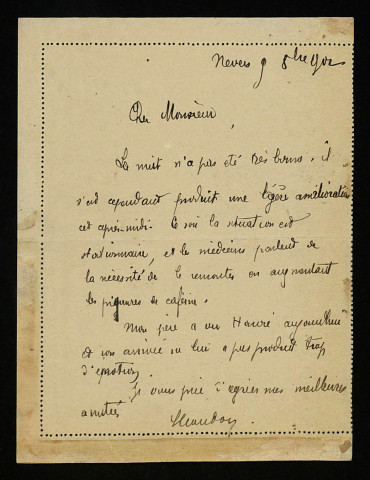 Nevers 9 8bre 1902
Cher Monsieur,
La nuit n'a pas été très bonne, il
s'est cependant produit une légère amélioration
cet après-midi. Ce soir la situation est
stationnaire, et les médecins parlent de
la nécessité de le remonter en augmentant
les piqures de caféine.
Mon père a vu Hanré aujourd'hui
et son arrivée ne lui a pas produit trop
d'émotion.
Je vous prie d'agréer mes meilleures
amitiés